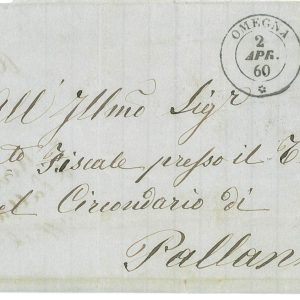 OMEGNA
2
APR.
60
All' Illmo Sigr
to Fiscale presso il T
el Circondario di
Pallan